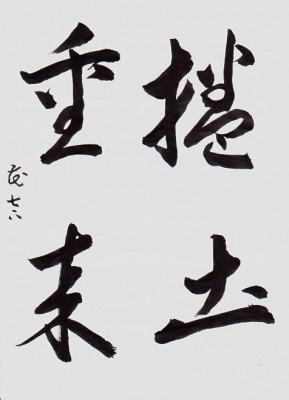 捲土
重来